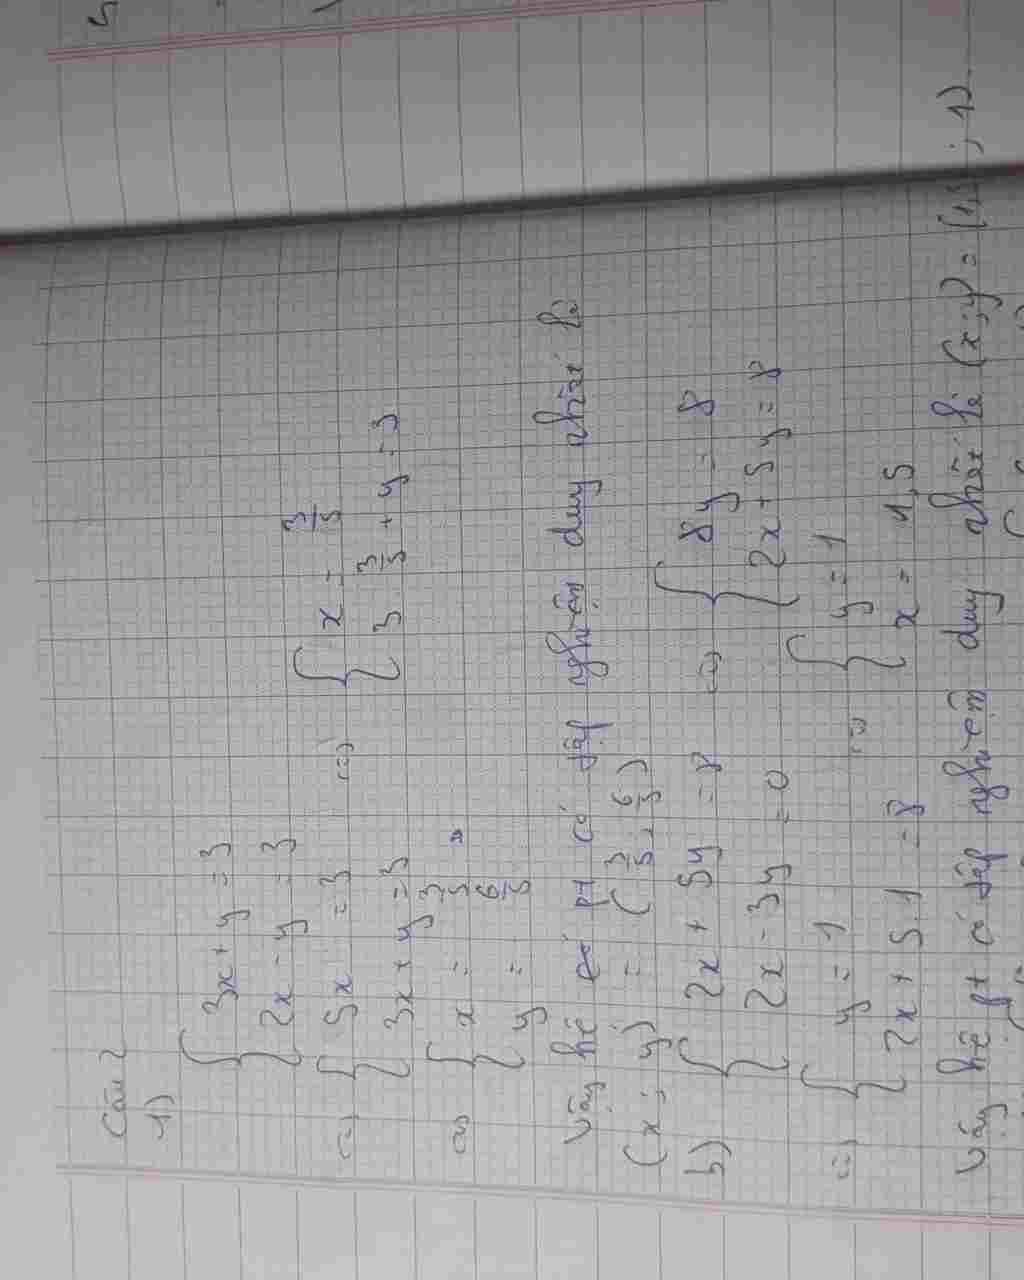 Câu 2
1) { 3x + y = 3
2x - y = 3
(=) { 5x = 3 (=) { x = 3/5
3x + y = 3 3 3/5 + y = 3
(=) { x = 3/5
y = 6/5
Vậy hệ pt có tập nghiệm duy nhất là
(x; y) = (3/5; 6/5)
b) { 2x + 5y = 8 (=) { 8y = 8
2x - 3y = 0 2x + 5y = 8
(=) { y = 1 (=) { y = 1
2x + 5.1 = 8 x = 1,5
Vậy hệ pt có tập nghiệm duy nhất là (x; y) = (1,5; 1).